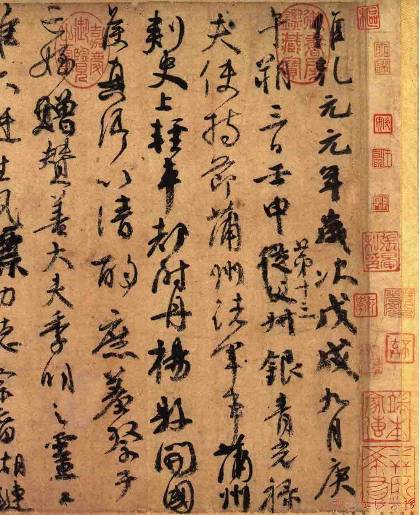 維乾元元年歲次戊戌九月庚
午朔三日壬申第十三從父叔銀青光祿
夫使持節蒲州諸軍事蒲州
刺史上輕車都尉丹楊縣開國
侯真卿以清酌庶羞祭于
亡姪贈贊善大夫季明之靈曰
惟爾挺生夙標幼德宗廟瑚璉